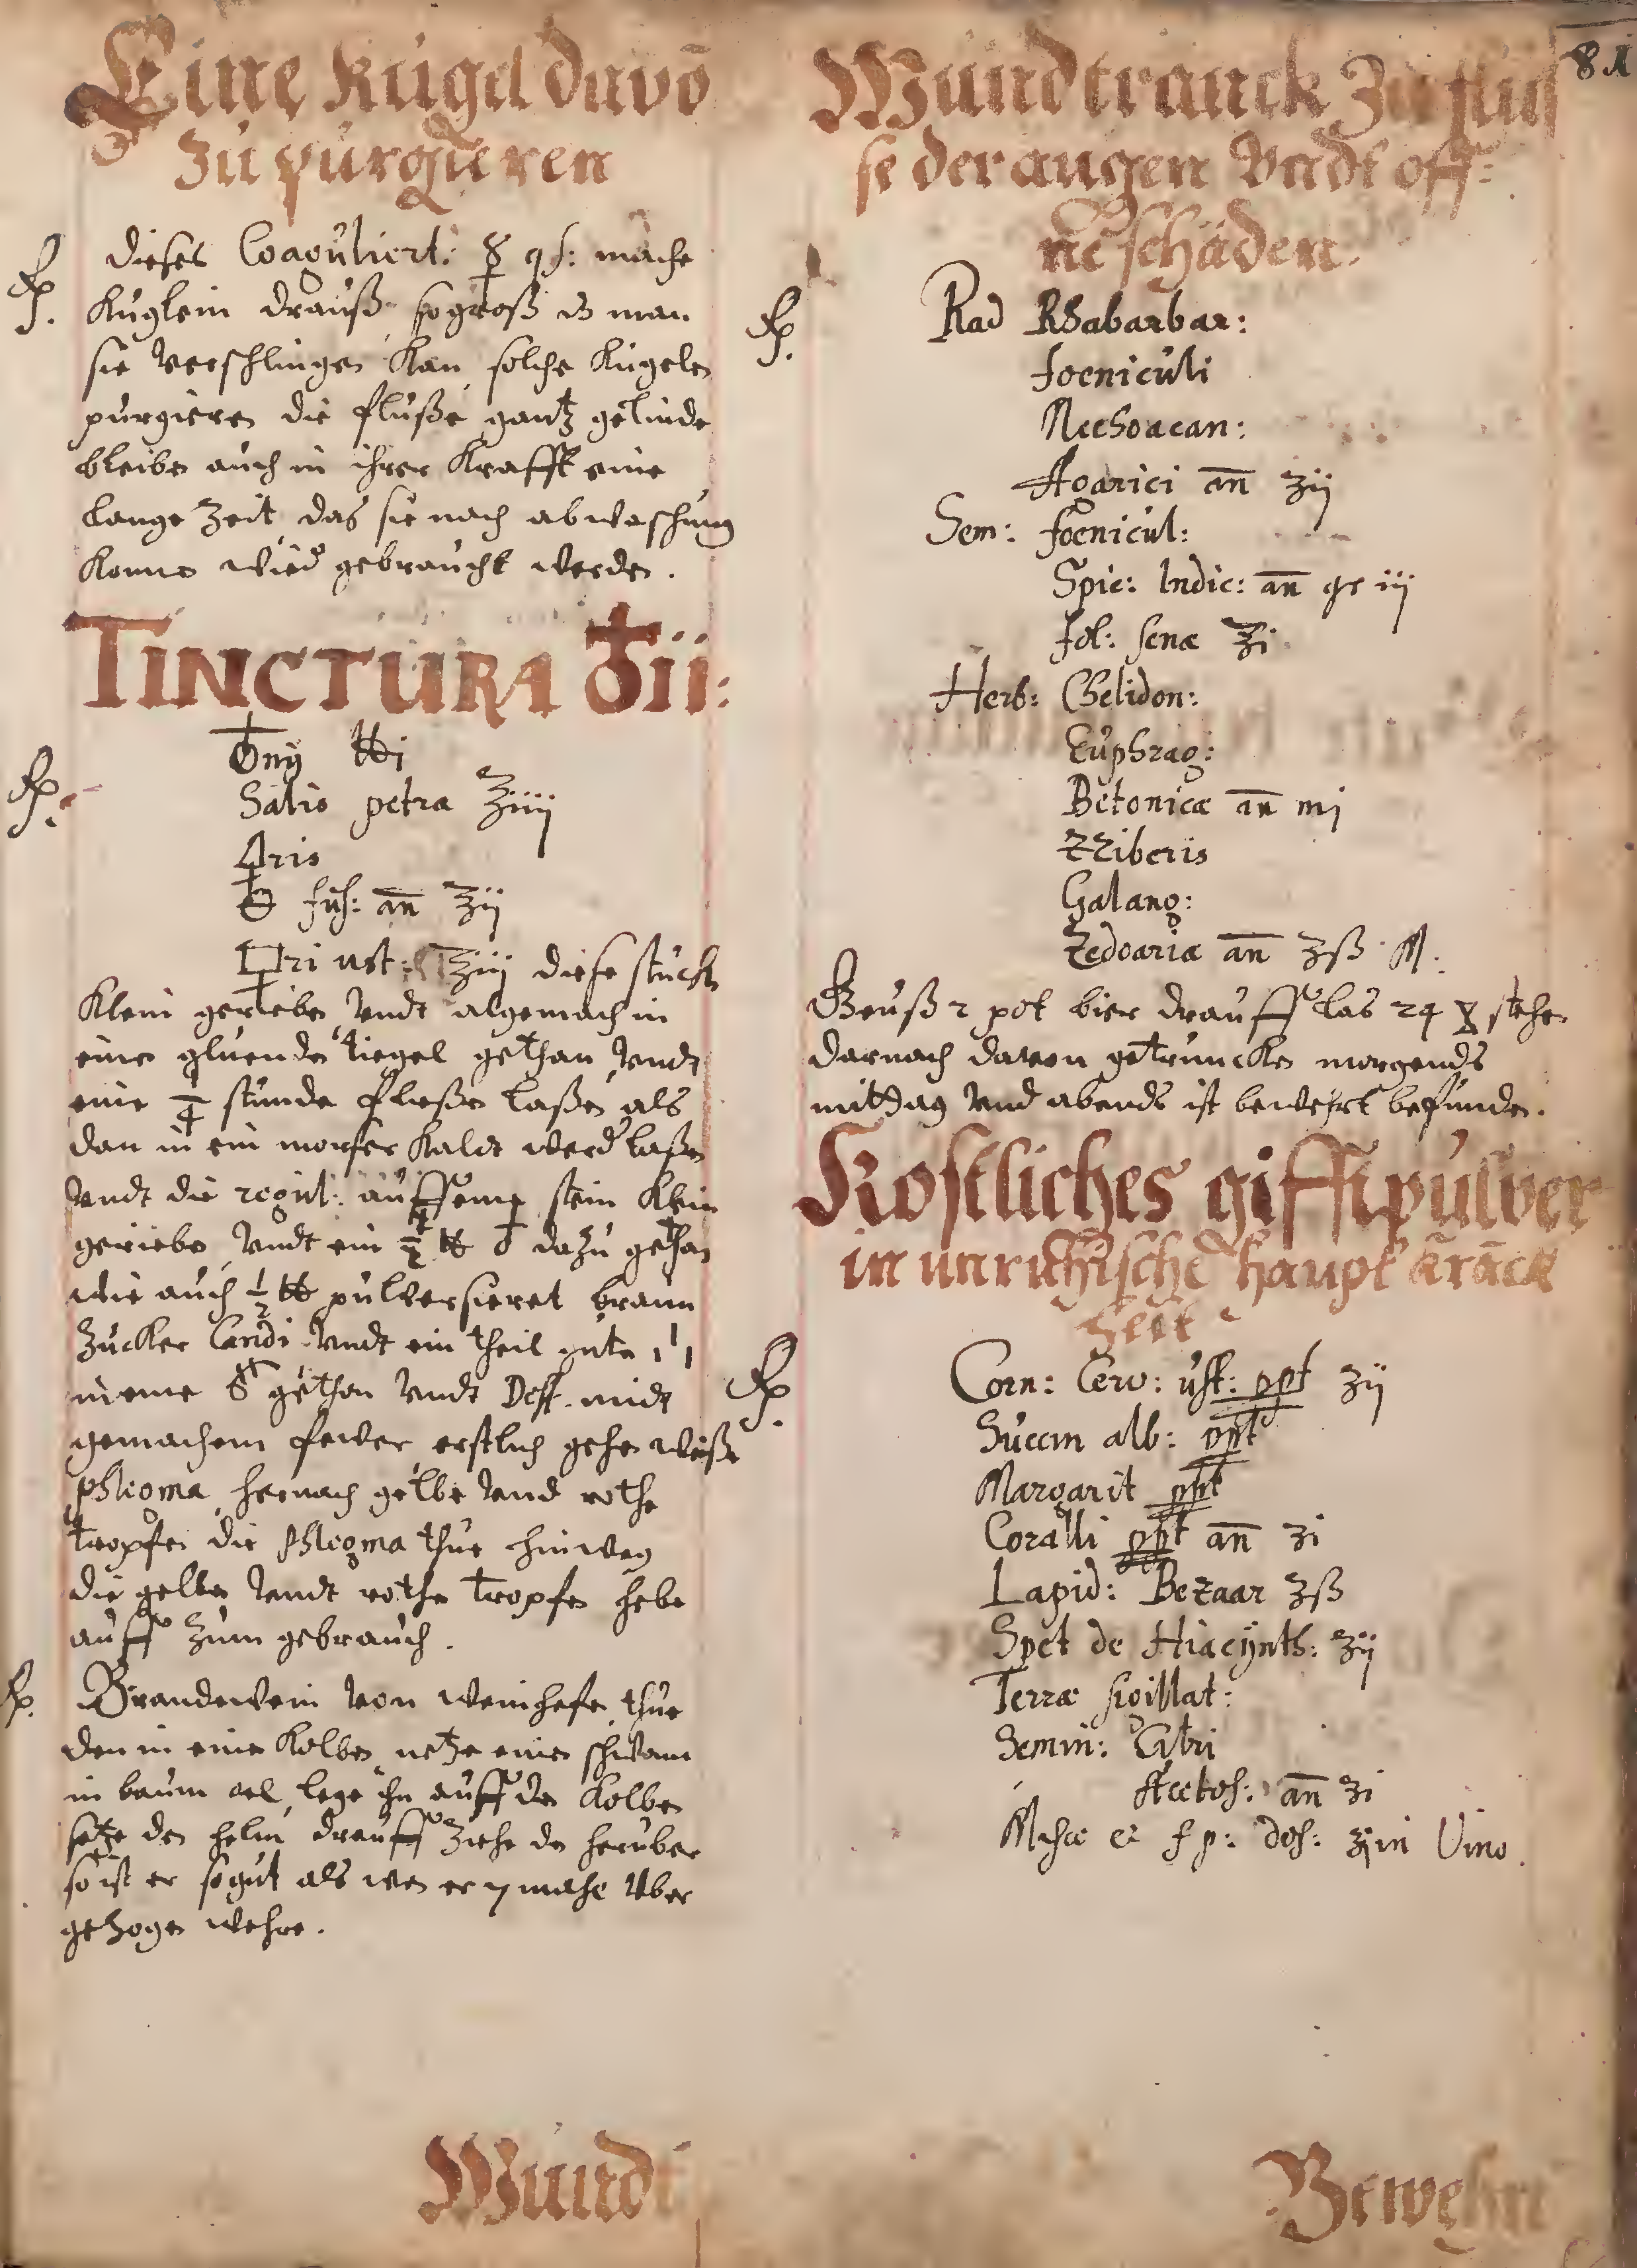 81
Eine Kugel davō
zu purgieren
Rp. Dieses Coaguliert: ☿ qs: mache
Kuglein drauß so groß ds man
sie verschlingen Kan, solche Kugelen
purgieren die fluße gantz gelinde
bleiben auch in ihrer Krafft eine
lange Zeit, das sie nach abwaschung
Konnen wied gebraucht werden.
TINCTURA ♁ii:
Rp. ♁nij ℔j
Salis petra ℥iiij
🜍ris
fus: an̄ ʒij
ri ust: ʒiij diese stuck
Klein gerieben vndt algemach in
einen gluenden tiegel gethan vndt
eine stunde fließen laßen, als
dan in ein morser Kaldt werd laßen
vndt die regul: auff eine stein Klein
gerieben, vndt ein ℔ dazu gethan
wie auch ½ ℔ pulversieret braun
Zucker Candi vndt ein theil
gethan vndt Dest. midt
gemachem fewer, erstlich gehen weiße
phlegma, hernach gelbe vnd rothe
tropfen die phlegma thue hinweg
die gelben vndt rothe tropfen hebe
auff zum gebrauch.
Rp. Brandewein von weinhefen, thue
den in einen Kolben, netze einen schwam
in baum oel, lege ihn auff den Kolben
setze den helm drauff ziehe den heruber
so ist er so gut als wen er 7 mahl vber
gezogen wehre.
Wund
Wundtranck Zu flus
se der augen Vndt off:
ne schäden.
Rp. Rad Rhabarbar:
foeniculi
Mechoacan:
Agarici an̄ ʒij
Sem: foenicul:
Spic: Indic: an̄ gr iij
fol: senæ ℥i
Herb: Chelidon:
Euphrag:
Betonicæ an̄ mj
ZZiberis
Galang:
Zedoariæ an̄ ʒß M.
Geuß 2 pot bier drauff las 24 stehen
darnach davon getruncken morgends
mittag vnd abends ist bewehrt befunden.
Kostliches gifftpulver
in unrichische haupt kranck
heit
Rp. Corn: Cerv: ust: ppt ʒij
Succin alb: ppt
Margarit ppt
Coralli ppt an̄ ʒi
Lapid: Bezaar ʒß
Spet de Hiacÿnth: ʒij
Terræ sigillat:
Semin: Citri
Acetos: an̄ ʒi
Misce et f p: dos: ʒj in Vino.
Bewehrt